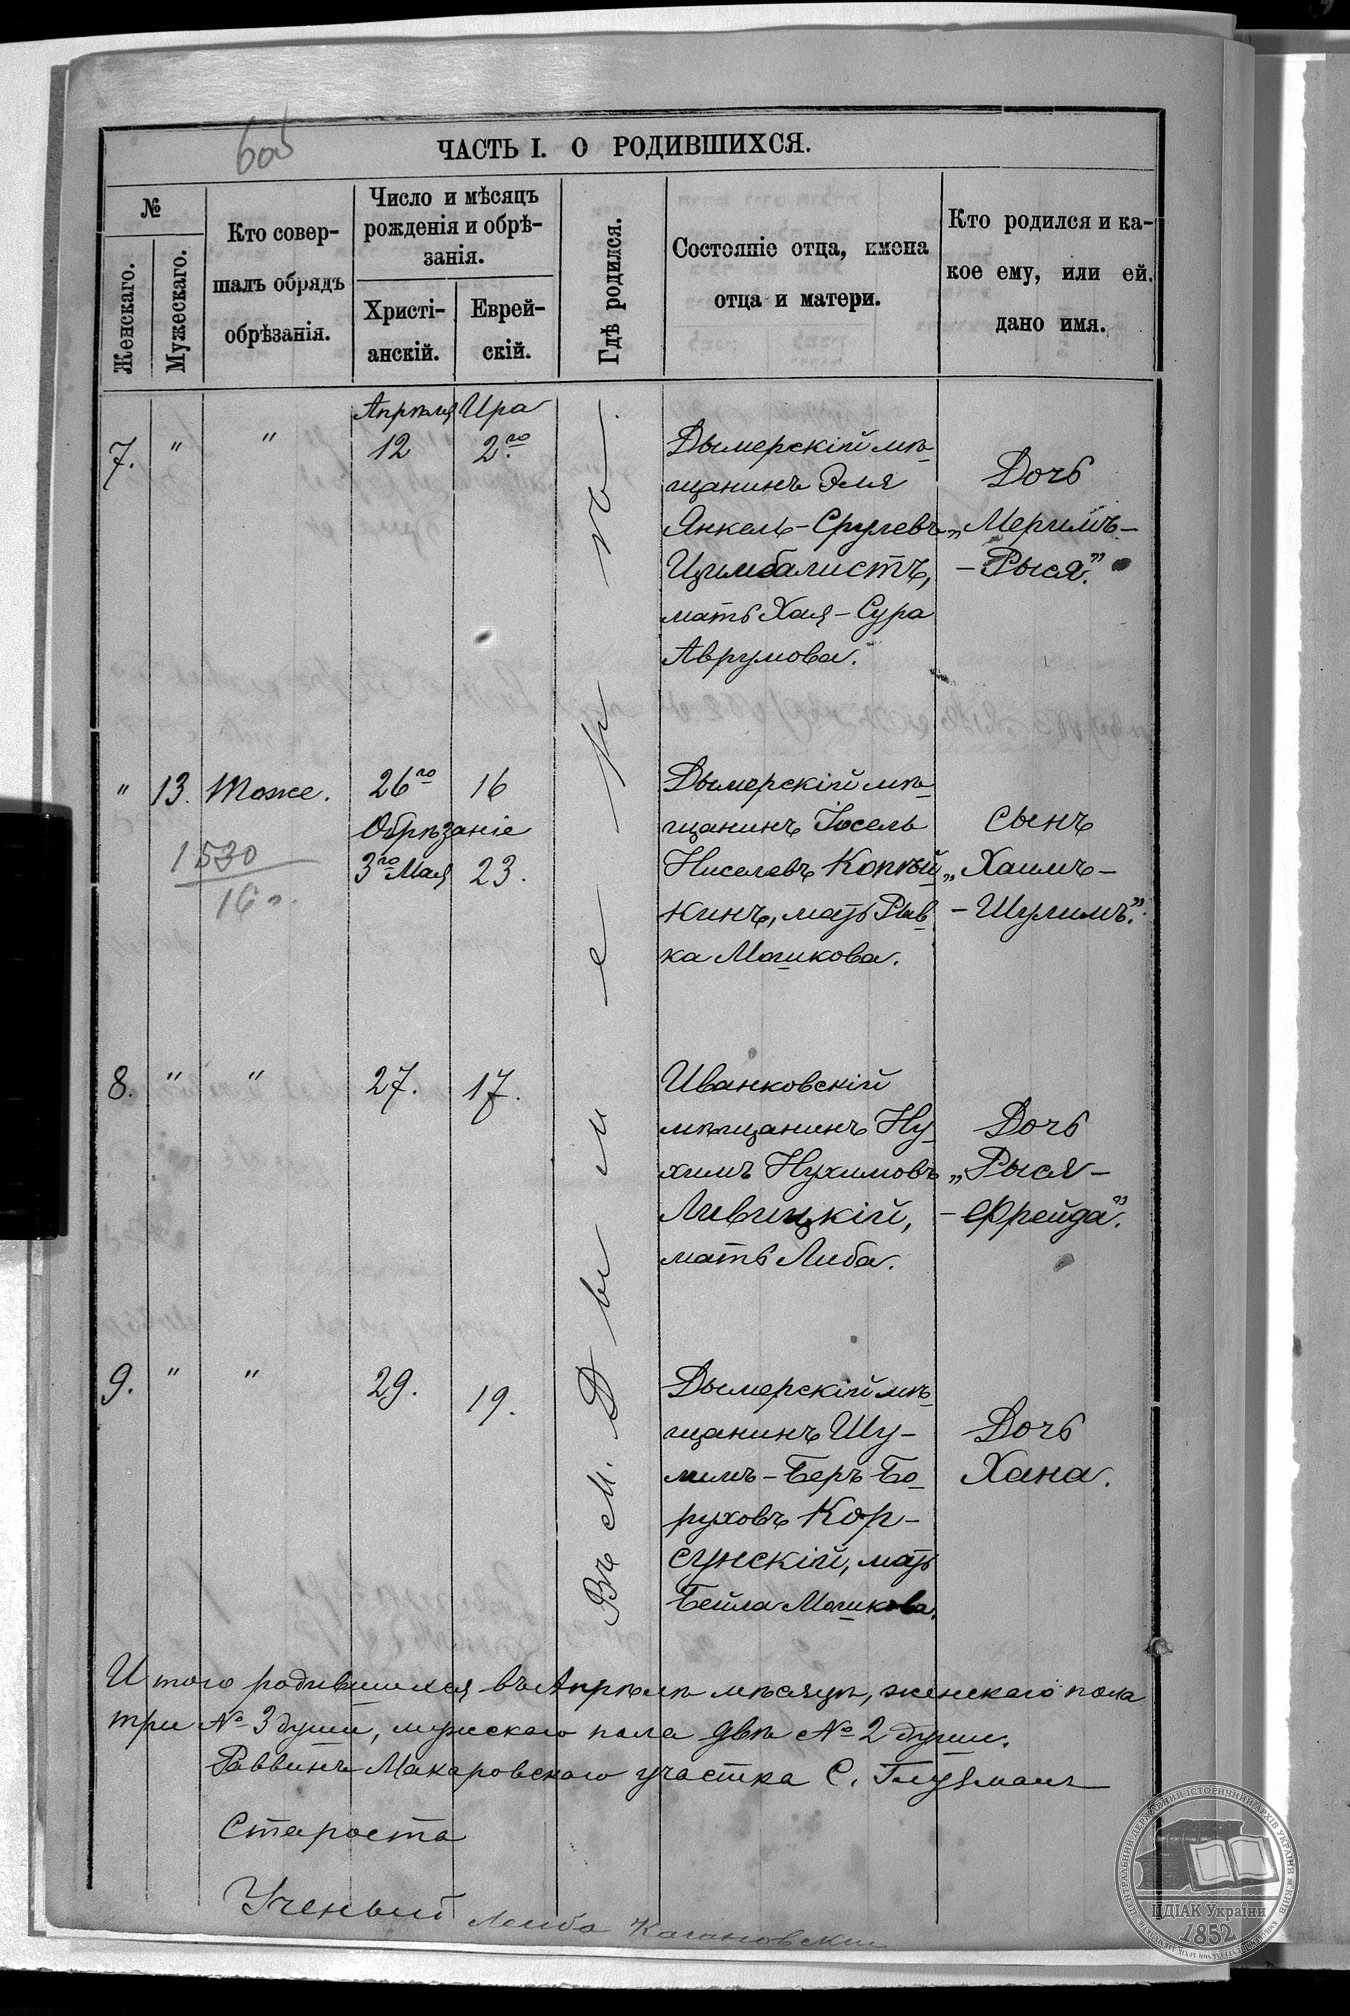 605
ЧАСТЬ I. О РОДИВШИХСЯ.
№
Женскаго.
Мужескаго.
Кто совер-
шалъ обрядъ
обрѣзанія.
Число и мѣсяцъ
рожденія и обрѣ-
занія.
Христі-
анскій.
Еврей-
скій.
Гдѣ родился.
Состояніе отца, имена
отца и матери.
Кто родился и ка-
кое ему, или ей
дано имя.
Въ м. Дымерѣ
7. " "
Апрѣля Ира
12 2го
Дымерскій мѣ-
щанинъ Эля
Янкель-Срулевъ
Цимбалистъ,
мать Хая-Сура
Аврумова.
Дочь
„Меримъ-
-Рыся."
" 13. Тоже. 26го 16
Обрѣзаніе
3го Мая 23.
1530
16
Дымерскій мѣ-
щанинъ Іосель
Ниселевъ Копѣй-
кинъ, мать Рыв-
ка Мошкова.
сынъ
„Хаимъ-
-Шулимъ."
8. " " 27. 17.
Иванковскій
мѣщанинъ Ну-
химъ Нухимовъ
Ливицкій,
мать Либа.
Дочь
„Рыся-
-Фрейда."
9. " " 29. 19.
Дымерскій мѣ-
щанинъ Шу-
лимъ-Беръ Бо-
руховъ Кор-
сунскій, мать
Бейла Мошкова.
Дочь
Хана.
Итого родившихся въ Апрѣлѣ мѣсяцѣ, женскаго пола
три № 3 души, мужскаго пола двѣ № 2 души.
Раввинъ Макаровскаго участка С. Глузманъ
Староста
Ученый Лейба Кагановскій
ЦЕНТРАЛЬНИЙ ДЕРЖАВНИЙ ІСТОРИЧНИЙ АРХІВ УКРАЇНИ М.КИЇВ
ЦДІАК України
1852